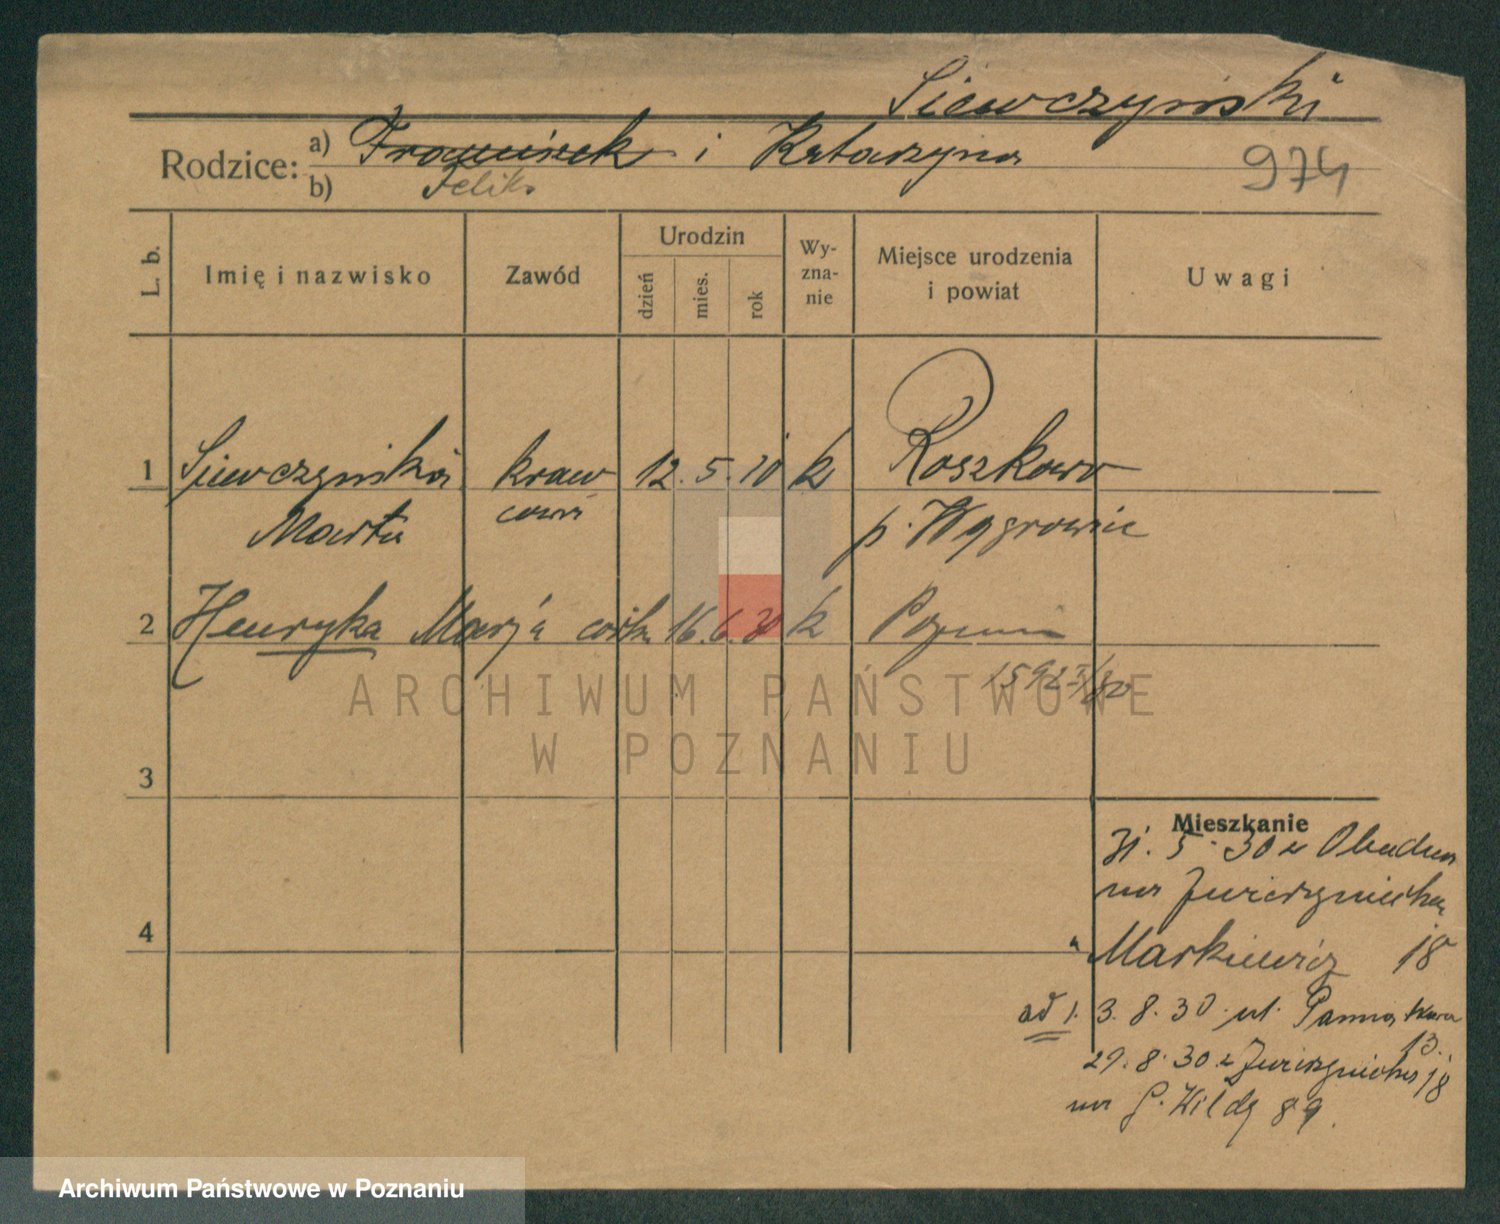 Siewczyński
Rodzice: a) Franciszek i Katarzyna
b) Feliks
974
L. b.
Imię i nazwisko
Zawód
Urodzin
dzień
mies.
rok
Wy-
zna-
nie
Miejsce urodzenia
i powiat
Uwagi
1 Siewczyńska kraw 12. 5. 10 k Roszkowo
Marta cowa p. Wągrowiec
2 Henryka Marja córk. 16. 6. 30 k Poznań
3
4
Mieszkanie
31. 5. 30 z
na
Markiewicz 18
ad 1. 3. 8. 30 ul.
13.
29. 8. 30 z 18
na G. Wildę 89.
ARCHIWUM PAŃSTWOWE
W POZNANIU
Archiwum Państwowe w Poznaniu